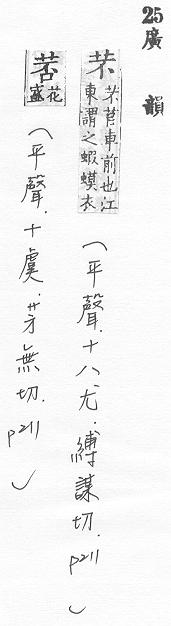 25廣韻
芣 芣苢車前也江
東謂之蝦蟆衣
(平聲.十八尤.縛謀切.p211)
䓏 花
盛
(平聲.十虞.芳無切.p211)